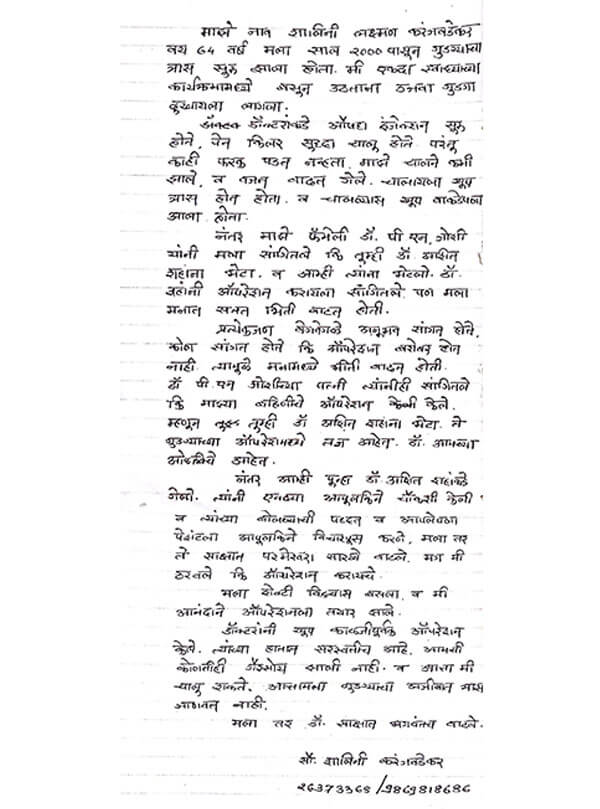 माझे नाव शालिनी लक्ष्मण करंगवडेकर
वय 64 वर्ष मला साल 2000 पासून गुडघ्याचा
त्रास सुरु झाला होता. मी एकदा स्वाध्यायाच्या
कार्यक्रमामध्ये बसून उठताना उजवा गुडघा
दुखायला लागला.
डॉक्टरांकडे औषध इंजेक्शन सुरु
होते, पेन किलर सुद्धा चालू होते परंतु
काही फरक पडत नव्हता. माझे चालने कमी
झाले, व वजन वाढत गेले. चालायला खूप
त्रास होत होता. व चालण्यास खूप वाकडेपणा
आला होता.
नंतर माझे फॅमिली डॉ. पी एन. जोशी
यांनी मला सांगितले कि तुम्ही डॉ. अश्विन
शहांना भेटा. व आम्ही त्यांना भेटलो. डॉ.
शहांनी ऑपरेशन करायला सांगितले. पण मला
मनात सतत भिती वाटत होती.
प्रत्येकजण वेगवेगळे अनुभव सांगत होते.
कोण सांगत होते कि ऑपरेशन बरोबर होत
नाही. त्यामुळे मनामध्ये भीती वाटत होती.
डॉ पी. एन जोशींच्या पत्नी त्यांनीही सांगितले
कि माझ्या बहिणीचे ऑपरेशन केले.
म्हणून तुम्ही डॉ अश्विन शहांना भेटा. ते
गुडघ्याच्या ऑपरेशनमध्ये तज्ञ आहेत. डॉ. आपल्या
ओळखिचे आहेत.
नंतर आम्ही पुन्हा डॉ. अश्विन शहांकडे
गेलो. त्यांनी एवढ्या आपुलकीने चौकशी केली
व त्यांच्या बोलण्याची पद्धत व आपलेपणा
पेशंटला आपुलकिने विचारपूस करणे, मला तर
ते साक्षात परमेश्वरा सारखे वाटले. मग मी
ठरवले कि ऑपरेशन करायचे.
मला शेवटी विश्वास बसला, व मी
आनंदाने ऑपरेशनला तयार झाले.
डॉक्टरांनी खूप काळजीपूर्वक ऑपरेशन
केले. त्यांच्या हातात सरस्वतीच आहे. आमची
कोणतीही झाली नाही. व आता मी
चालु शकते. गुडघ्याचा अजीबात त्रास
जाणवत नाही.
मला तर डॉ. साक्षात भगवंतच वाटले.
सौ. शालिनी करंगवडेकर
26373368 / 9869818686